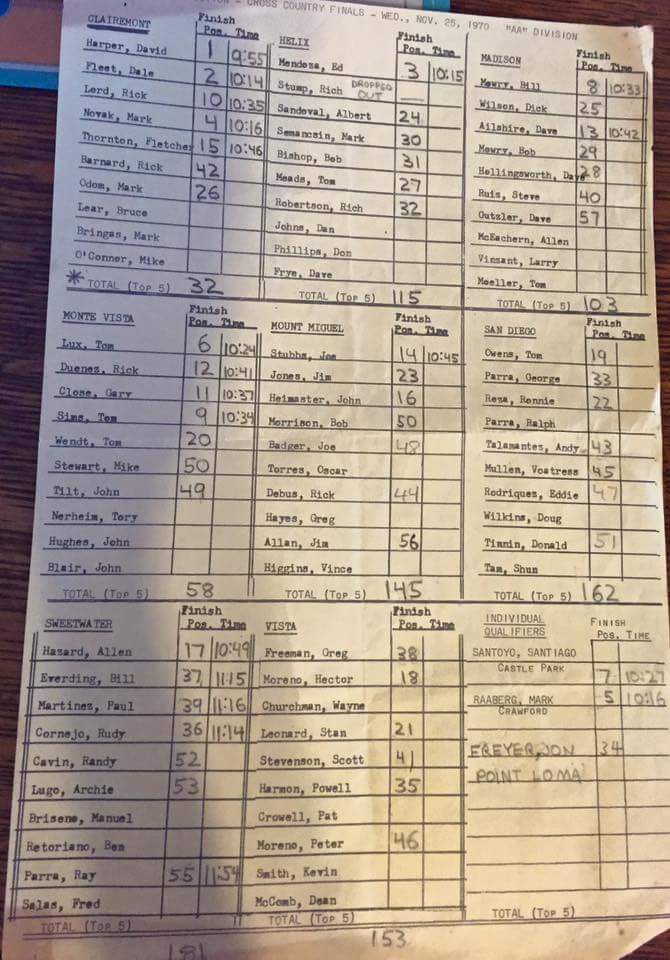 CROSS COUNTRY FINALS - WED., NOV. 25, 1970 "AA" DIVISION
CLAIREMONT Finish Pos. Time
Harper, David 1 9:55
Fleet, Dale 2 10:14
Lord, Rick 10 10:35
Novak, Mark 4 10:16
Thornton, Fletcher 15 10:46
Barnard, Rick 42
Odom, Mark 26
Lear, Bruce
Bringas, Mark
O'Conner, Mike
* TOTAL (TOP 5) 32
HELIX Finish Pos. Time
Mendoza, Ed 3 10:15
Stump, Rich DROPPED OUT —
Sandoval, Albert 24
Semancsin, Mark 30
Bishop, Bob 31
Meads, Tom 27
Robertson, Rich 32
Johns, Dan
Phillips, Don
Frye, Dave
TOTAL (TOP 5) 115
MADISON Finish Pos. Time
Mowry, Bill 8 10:33
Wilson, Dick 25
Ailshire, Dave 13 10:42
Mowry, Bob 29
Hollingsworth, Dave 28
Ruiz, Steve 40
Outzler, Dave 57
McEachern, Allen
Vinsant, Larry
Moeller, Tom
TOTAL (TOP 5) 103
MONTE VISTA Finish Pos. Time
Lux, Tom 6 10:24
Duenez, Rick 12 10:41
Close, Gary 11 10:37
Sims, Tom 9 10:34
Wendt, Tom 20
Stewart, Mike 50
Tilt, John 49
Nerheim, Tory
Hughes, John
Blair, John
TOTAL (TOP 5) 58
MOUNT MIGUEL Finish Pos. Time
Stubbs, Joe 14 10:45
Jones, Jim 23
Heimaster, John 16
Morrison, Bob 50
Badger, Joe 48
Torres, Oscar
Debus, Rick 44
Hayes, Greg
Allan, Jim 56
Higgins, Vince
TOTAL (TOP 5) 145
SAN DIEGO Finish Pos. Time
Owens, Tom 19
Parra, George 33
Reza, Ronnie 22
Parra, Ralph
Talamantes, Andy 43
Mullen, Vostress 45
Rodriquez, Eddie 47
Wilkins, Doug
Tinnin, Donald 51
Tam, Shun
TOTAL (TOP 5) 162
SWEETWATER Finish Pos. Time
Hazard, Allen 17 10:49
Everding, Bill 37 11:15
Martinez, Paul 39 11:16
Cornejo, Rudy 36 11:14
Cavin, Randy 52
Lugo, Archie 53
Brisene, Manuel
Retoriano, Ben
Parra, Ray 55 11:54
Salas, Fred
TOTAL (TOP 5)
181
VISTA Finish Pos. Time
Freeman, Greg 38
Moreno, Hector 18
Churchman, Wayne
Leonard, Stan 21
Stevenson, Scott 41
Harmon, Powell 35
Crowell, Pat
Moreno, Peter 46
Smith, Kevin
McComb, Dean
TOTAL (TOP 5)
153
INDIVIDUAL QUALIFIERS FINISH POS. TIME
SANTOYO, SANTIAGO
CASTLE PARK 7 10:27
RAABERG, MARK 5 10:16
CRAWFORD
FREYER, JON 34
POINT LOMA
TOTAL (TOP 5)